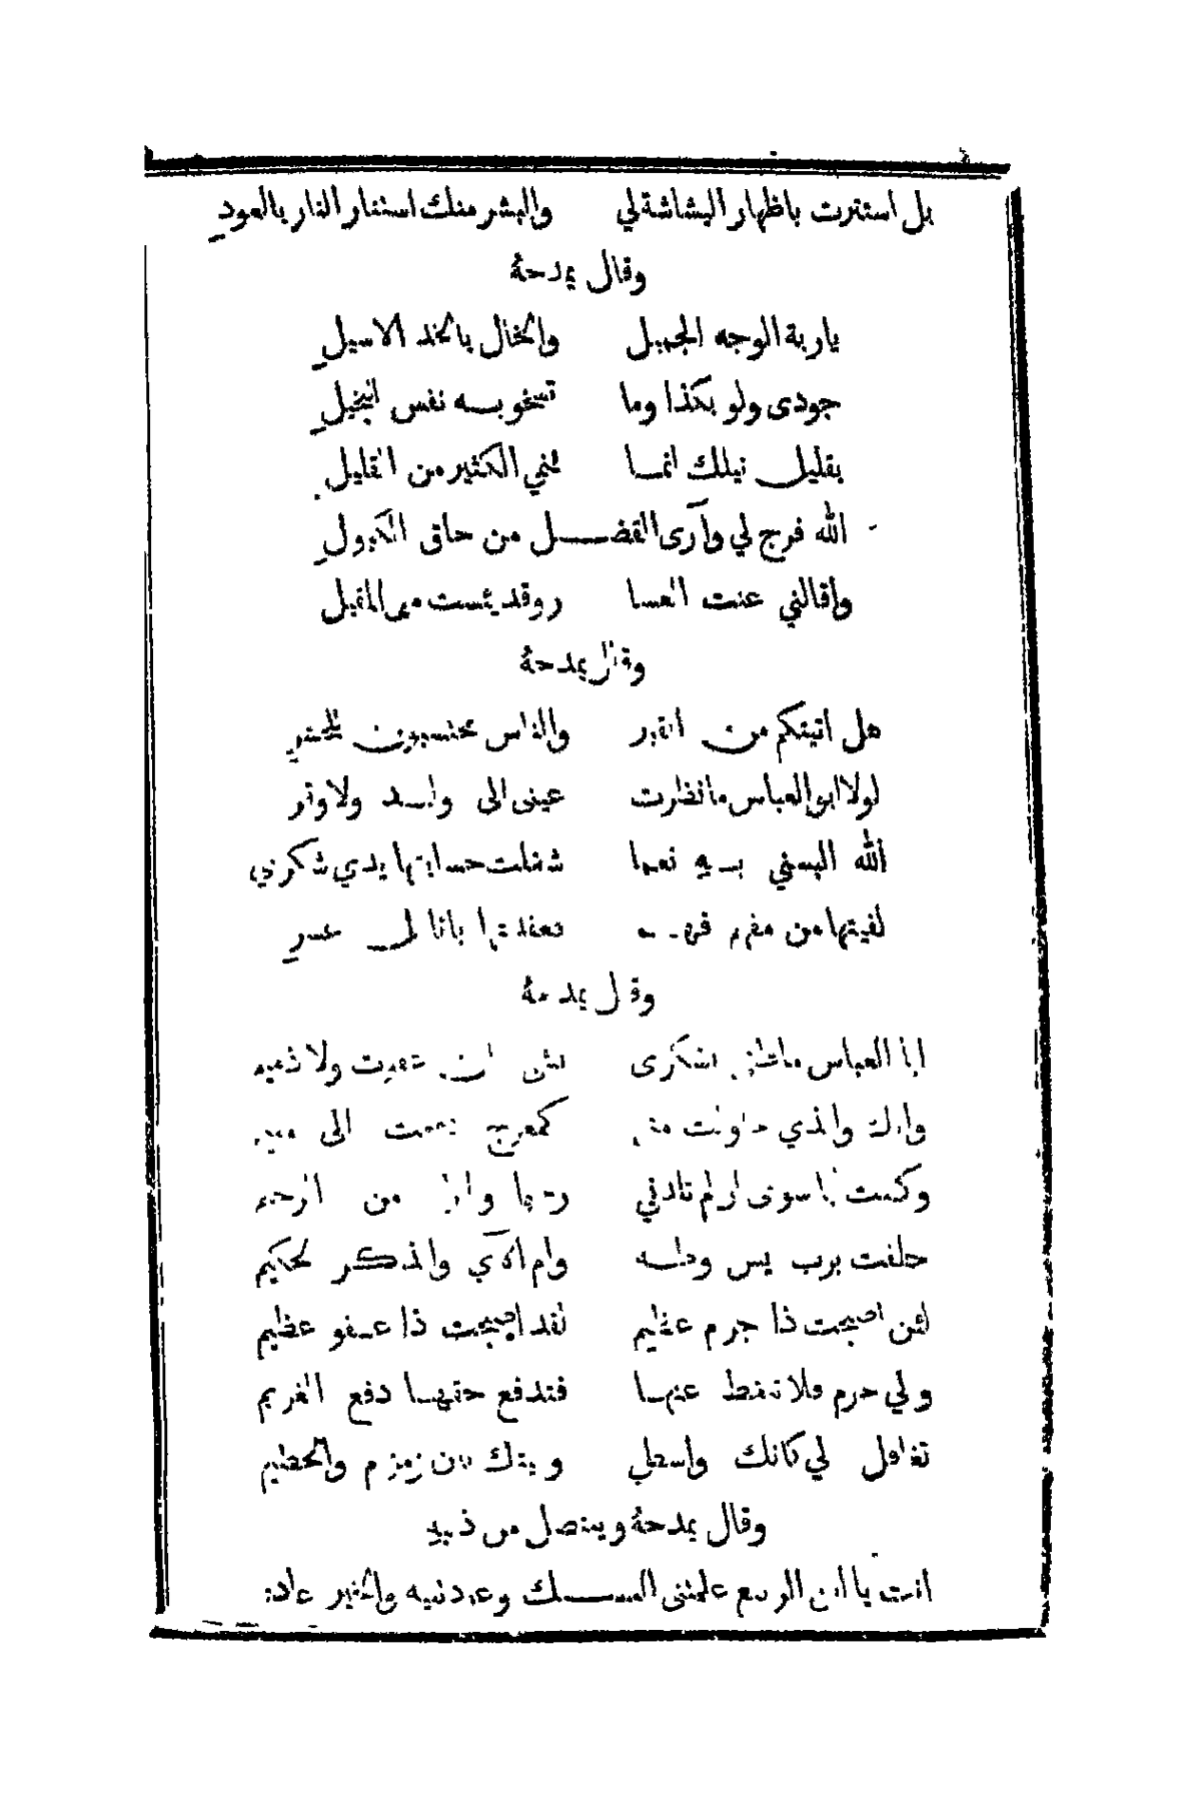 بل استترت باظهار البشاشة لي والبشر منك استتار النار بالعود
وقال يمدحة
ياربة الوجه الجميل والخال بالخد الاسيل
جودى ولو بكذا وما تسخو بـه نفس البخيل
بقليل نيلك انما ننمي الكثير من القليل
الله فرج لي وآرى الفضـل من حلق الكبول
واقالني عنت العسا روقد يئست من المقيل
وقال يمدحة
هل اتيتكم من القبر والناس محتسبون للحشر
لولا ابو العباس ما نظرت عينى الى ولـد ولا وتر
الله البسني بـه نعما شغلت حسابتها يدي شكري
لقيتها من مفهم فهـم فعقدتها بانامل عشر
وقال يمدحة
ابا العباس ما ظني بشكرى
والذي حاولت مني كمعوج الى
وكنت ابا سوى ان لم تلدني رحيما او من الرحيم
حلفت برب يس وطـه وام الآي والذكـر الحكيم
لئن اصبحت ذا جرم عظيم لقد اصبحت ذا عـفو عظيم
ولي حرم فلا عنهـا فتدفع حقهـا دفع الغريم
تغافل لي كانك واسطي وبيتك بين زمزم والحطيم
وقال يمدحة ويتنصل من ذنبه
انت يا ابن الربيع علمتنى النسـك وعودتنيه والخير عاده